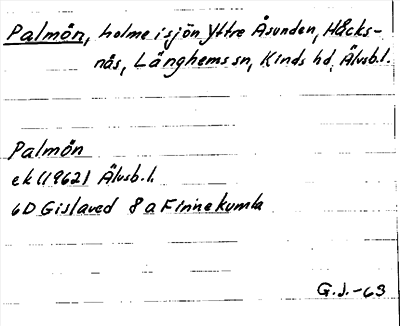 Palmön, holme i sjön Yttre Åsunden, Håcks-
nås, Länghems sn, Kinds hd, Älvsb.l.
Palmön
ek (1962) Älvsb.l.
6D Gislaved 8a Finnekumla
G.J.-63